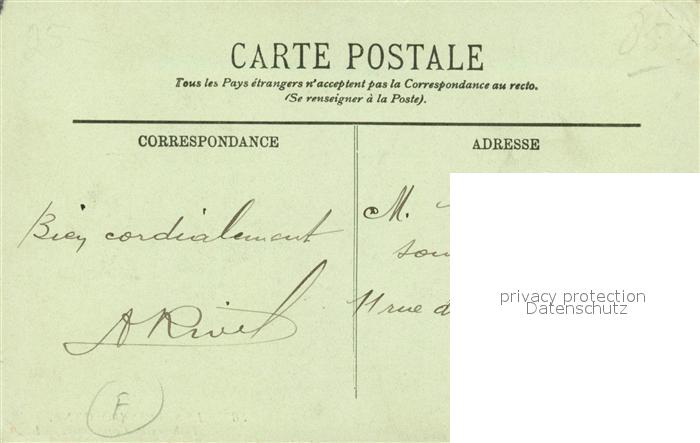 25-
850
CARTE POSTALE
Tous les Pays étrangers n'acceptent pas la Correspondance au recto.
(Se renseigner à la Poste).
CORRESPONDANCE
ADRESSE
Bien cordialement
A Rivet
F
M.
sou
11 rue d
privacy protection
Datenschutz